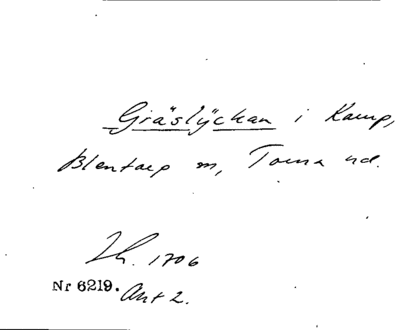 Gräslyckan i Kamp,
Blentarp sn, Torna hd.
Jb. 1706
Nr 6219. Ant 2.